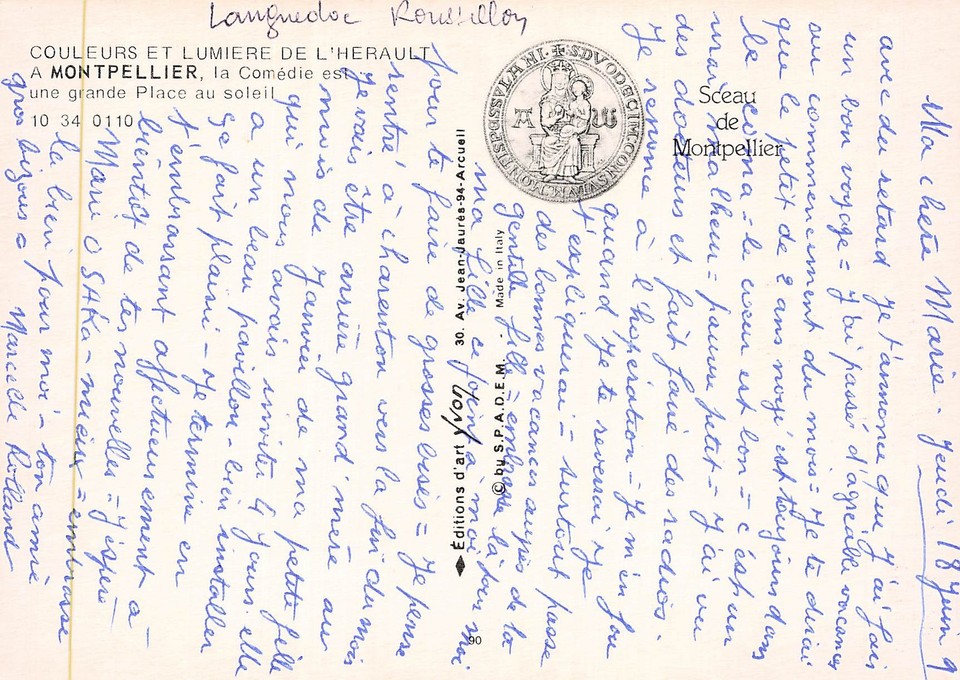 Languedoc Roussillon
COULEURS ET LUMIERE DE L'HERAULT
A MONTPELLIER, la Comédie est
une grande Place au soleil
10 34 0110
SDVODECIM CONS
Sceau
de
Montpellier
Éditions d'art Yvon 30. Av. Jean-Jaurès-94-Arcueil
© by S.P.A.D.E.M. - Made in Italy
90
Ma chere Marie - Jeudi 18 Juin 9
avec du retard Je t'annonce que J'ai fais
un bon voyage = J'ai passé d'agréable vacances
au commencement du mois = Je te dirai
que le petit de 2 ans noyé est toujours dans
le coma = le coeur est bon = c'est un
vrai malheur = pauvre petit = J'ai vu
des docteurs et fait faire des radios.
Je renonce à l'hopération = Je m'en fou
quand Je te reverrai Je
t'expliquerai = surtout passe
des bonnes vacances auprès de ta
gentille fille = embrasse la pour moi
ma fille ce joint à moi
pour te faire de grosses bises = Je pense
rentré à charenton vers la fin du mois
Je vais être arrière grand'mère au
mois de Janvier de ma petite fille
qui nous avais invité 4 Jours elle
a un beau pavillon - bien installer
ça fait plaisir - Je termine en
t'embrassant affectueusement a-
bientôt de tes nouvelles = J'espère
Marie O SAKA - mieux = embrasse
la bien pour moi - ton amie
gros bizous Marcelle Rolland